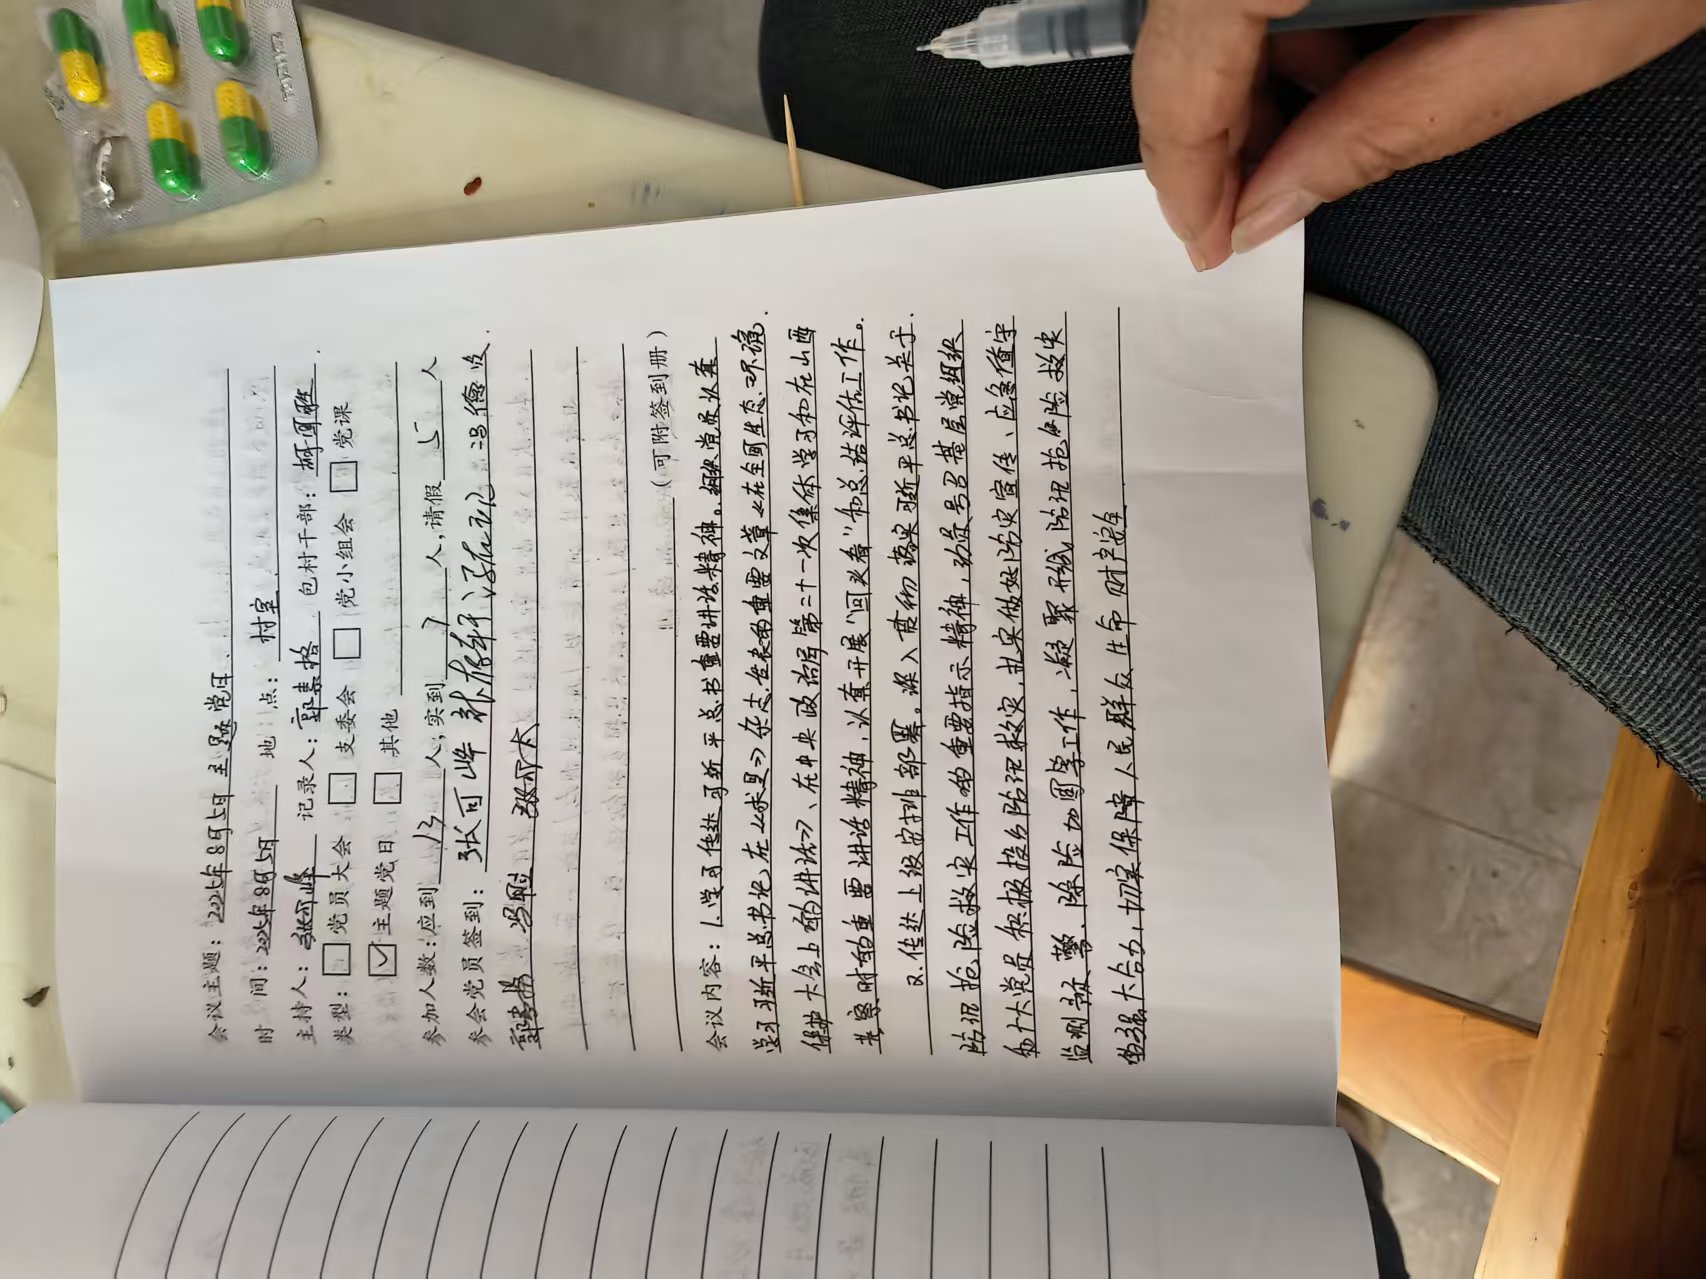 会议主题：2025年8月5日主题党日.
时 间：2025年8月5日 地 点：村室
主持人：张可峰 记录人： 包村干部：
类型：□党员大会 □支委会 □党小组会 □党课
☑主题党日 □其他
参加人数：应到 13 人，实到 7 人，请假 5 人
参会党员签到：张可峰
（可附签到册）
会议内容：1.学习传达习近平总书重要讲话精神。组织党员认真
学习习近平总书记在《求是》杂志发表的重要文章《在全国生态环境
保护大会上的讲话》、在中央政治局第二十一次集体学习和在山西
考察时的重要讲话精神，认真开展“回头看”和总结评估工作。
2.传达上级安排部署。深入贯彻落实习近平总书记关于
防汛抢险救灾工作的重要指示精神，动员号召基层党组织
和广大党员积极投身防汛救灾，扎实做好防灾宣传、应急值守
监测预警、除险加固等工作，凝聚形成防汛抢险救灾
的强大合力，切实保障人民群众生命财产安全